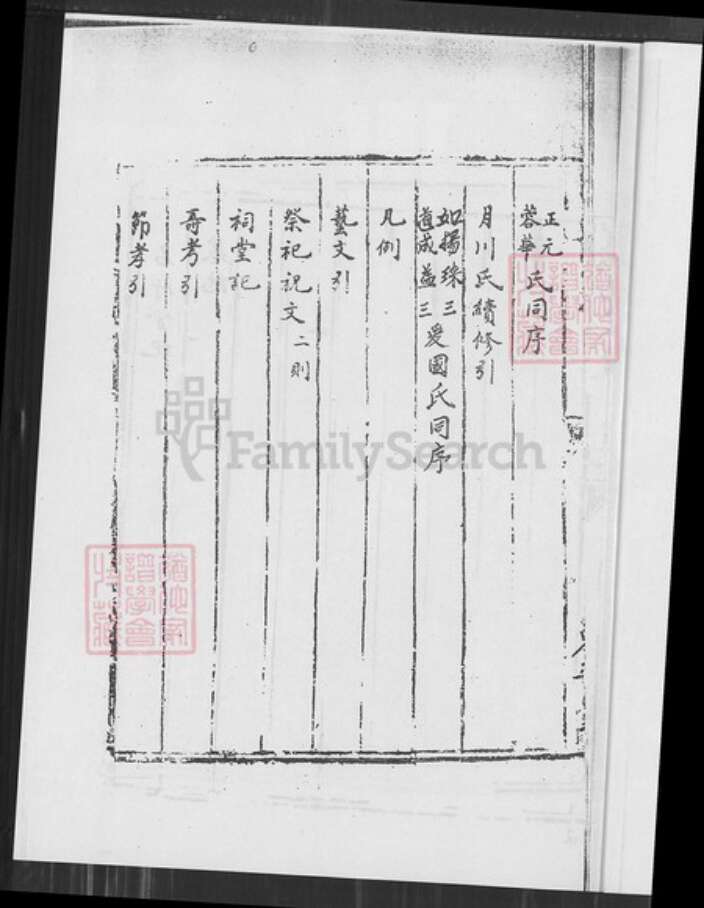 正元
蓉華
氏同序
月川氏續修引
如揚珠三
道成益三
爰國氏同序
凡例
藝文引
祭祀祝文二則
祠堂記
壽考引
節孝引
FamilySearch